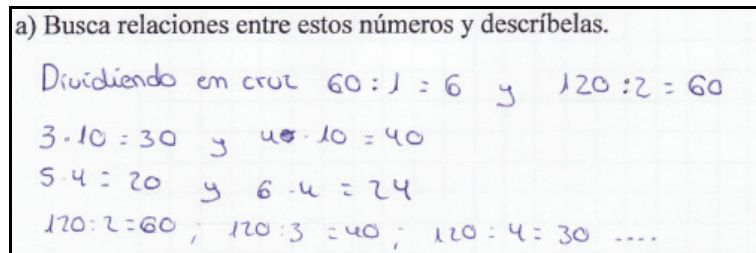 a) Busca relaciones entre estos números y descríbelas.
Dividiendo en cruz 60 : 1 = 6 y 120 : 2 = 60
3 . 10 = 30 y 4 . 10 = 40
5 . 4 = 20 y 6 . 4 = 24
120 : 2 = 60 ; 120 : 3 = 40 ; 120 : 4 = 30 ....